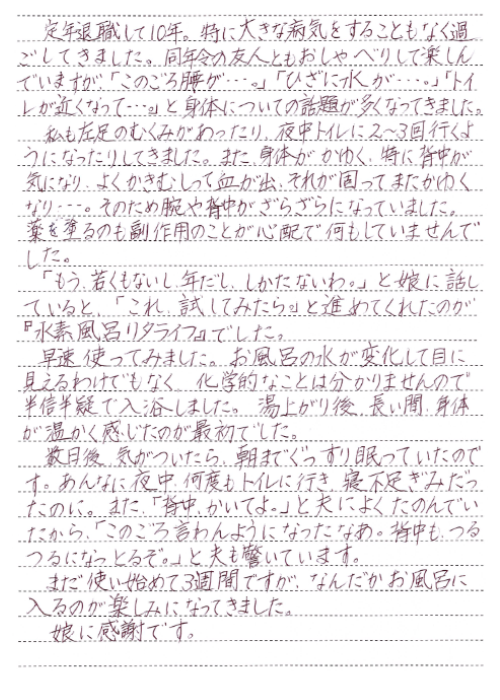 定年退職して10年。特に大きな病気をすることもなく過
ごしてきました。同年令の友人ともおしゃべりして楽しん
でいますが、「このごろ腰が…。」「ひざに水が…。」「トイ
レが近くなって…。」と身体についての話題が多くなってきました。
私も左足のむくみがあったり、夜中トイレに2~3回行くよ
うになったりしてきました。また、身体がかゆく、特に背中が
気になり、よくかきむしって血が出、それが固ってまたかゆく
なり…。そのため腕や背中がざらざらになっていました。
薬を塗るのも副作用のことが心配で何もしていませんで
した。
「もう、若くもないし、年だし、しかたないわ。」と娘に話し
ていると、「これ、試してみたら。」と進めてくれたのが
『水素風呂リタライフ』でした。
早速、使ってみました。お風呂の水が変化して目に
見えるわけでもなく、化学的なことは分かりませんので
半信半疑で入浴しました。湯上がり後、長い間、身体
が温かく感じたのが最初でした。
数日後、気がついたら、朝までぐっすり眠っていたので
す。あんなに夜中、何度もトイレに行き、寝不足ぎみだっ
たのに。また、「背中、かいてよ。」と夫によくたのんでい
たから、「このごろ言わんようになったなあ。背中も、つる
つるになっとるぞ。」と夫も驚いています。
まだ使い始めて3週間ですが、なんだかお風呂に
入るのが楽しみになってきました。
娘に感謝です。